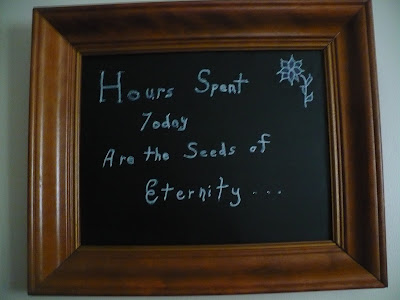 Hours Spent
Today
Are the Seeds of
Eternity...